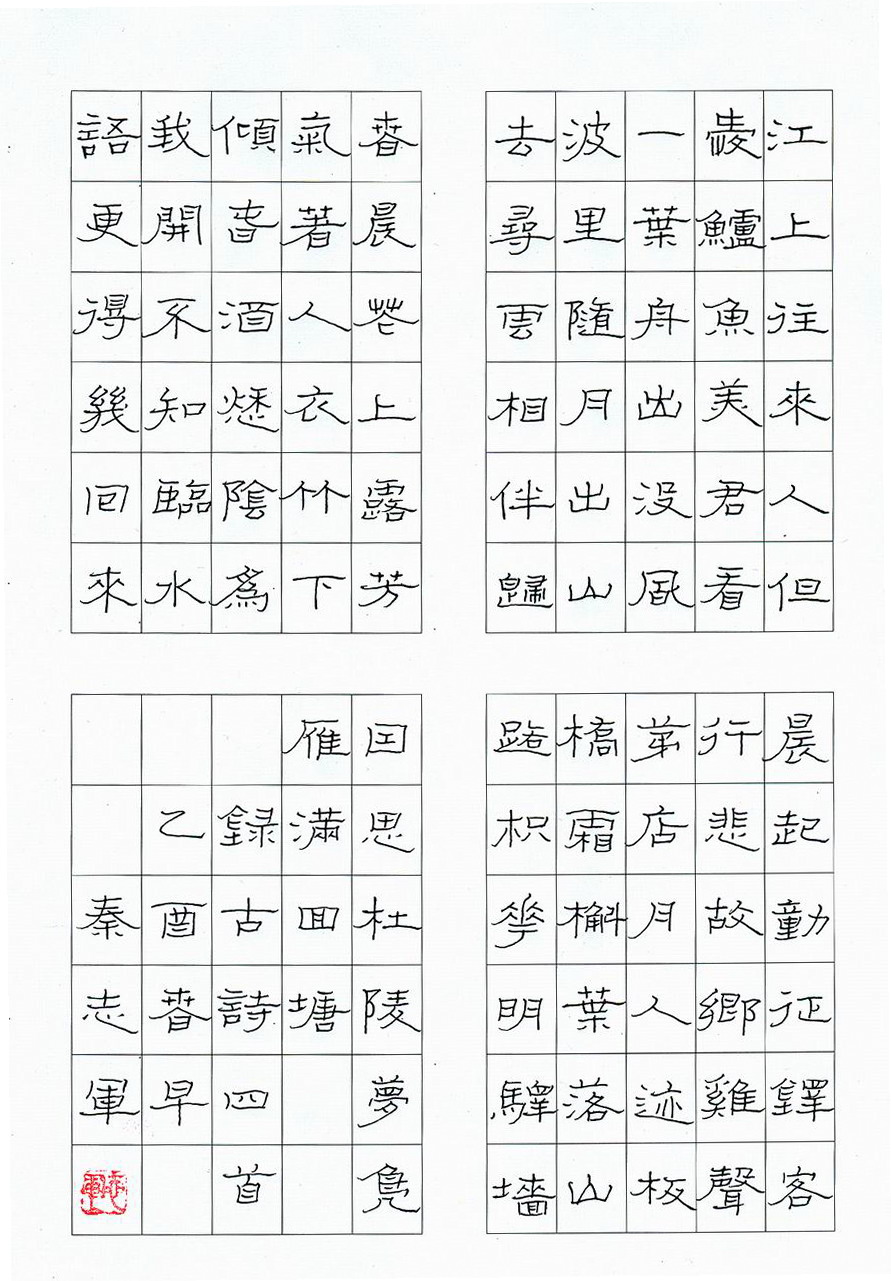 江上往來人但
愛鱸魚美君看
一葉舟出没風
波里隨月出山
去尋雲相伴歸
春晨花上露芳
氣著人衣竹下
傾春酒愁陰為
我開不知臨水
語更得幾回來
晨起動征鐸客
行悲故鄉雞聲
茅店月人迹板
橋霜槲葉落山
路枳花明驛墻
因思杜陵夢鳧
雁滿回塘
録古詩四首
乙酉春早
秦志軍